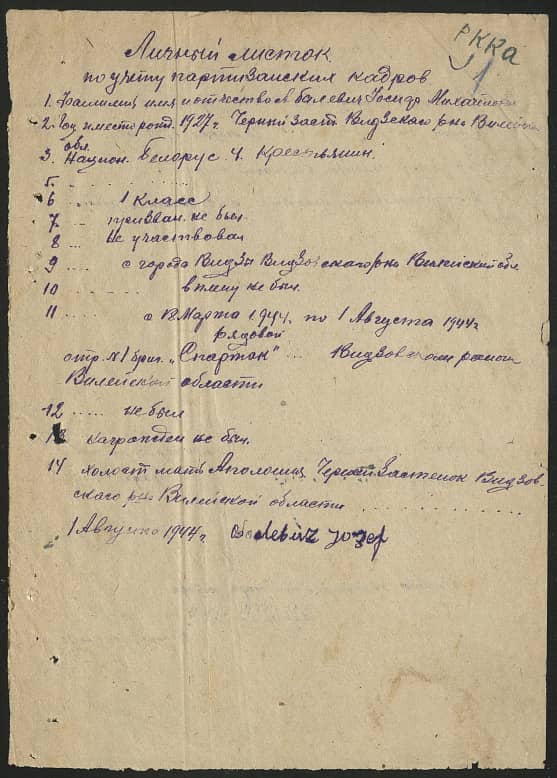 РККА
1
Личный листок
по учету партизанских кадров
1. Фамилия имя и отчество Балевич Иосиф Михайлов
2. Год и место рожд. 1927 г. Черный заст. Видзского р-на Вилейс
обл.
3. Национ. Белорус 4. Крестьянин.
5. ....
6 .... 1 класс
7 .... призван. не был.
8 .... Не участвовал
9 .... с города Видзы Видзовского р-на Вилейский обл
10 .... в плену не был.
11 .... с 12 Марта 1944. по 1 Августа 1944 г
рядовой
отр. N 1 бриг. "Спартак" ... Видзовском районе
Вилейской области
12 ..... не был
13 награжден не был.
14 холост мать Аполония Черный Застенок Видзов
ского р-на Вилейской области ..............
1 Августа 1944 г. Balewicz Jozef